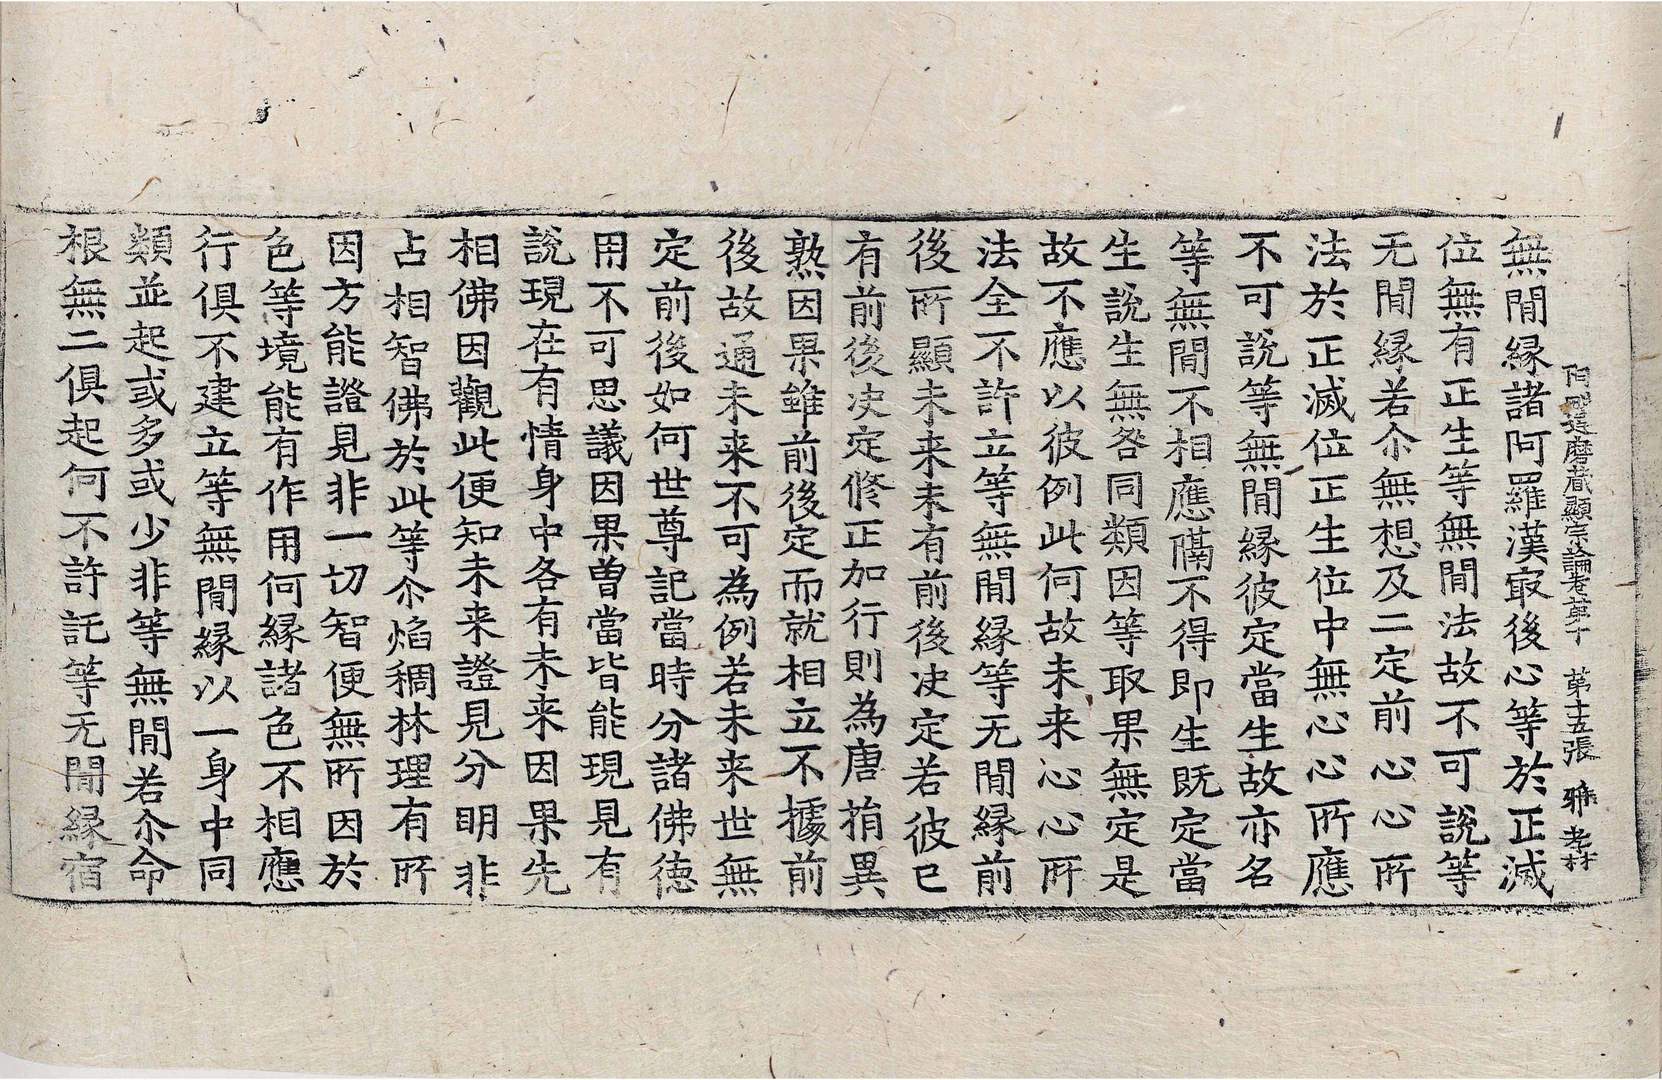 阿毗達磨藏顯宗論卷第十 第十五張 雅 孝林
無閒緣諸阿羅漢冣後心等於正滅
位無有正生等無閒法故不可說等
无閒緣若尒無想及二定前心心所
法於正滅位正生位中無心心所應
不可說等無閒緣彼定當生故亦名
等無閒不相應隔不得即生旣定當
生說生無咎同類因等取果無定是
故不應以彼例此何故未来心心所
法全不許立等無閒緣等无閒緣前
後所顯未来未有前後决定若彼已
有前後决定修正加行則為唐捐異
熟因果雖前後定而就相立不據前
後故通未来不可為例若未来世無
定前後如何世尊記當時分諸佛徳
用不可思議因果曽當皆能現見有
說現在有情身中各有未来因果先
相佛因觀此便知未来證見分明非
占相智佛於此等尒焰稠林理有所
因方能證見非一切智便無所因於
色等境能有作用何緣諸色不相應
行俱不建立等無閒緣以一身中同
類並起或多或少非等無閒若尒命
根無二俱起何不許託等无閒緣宿